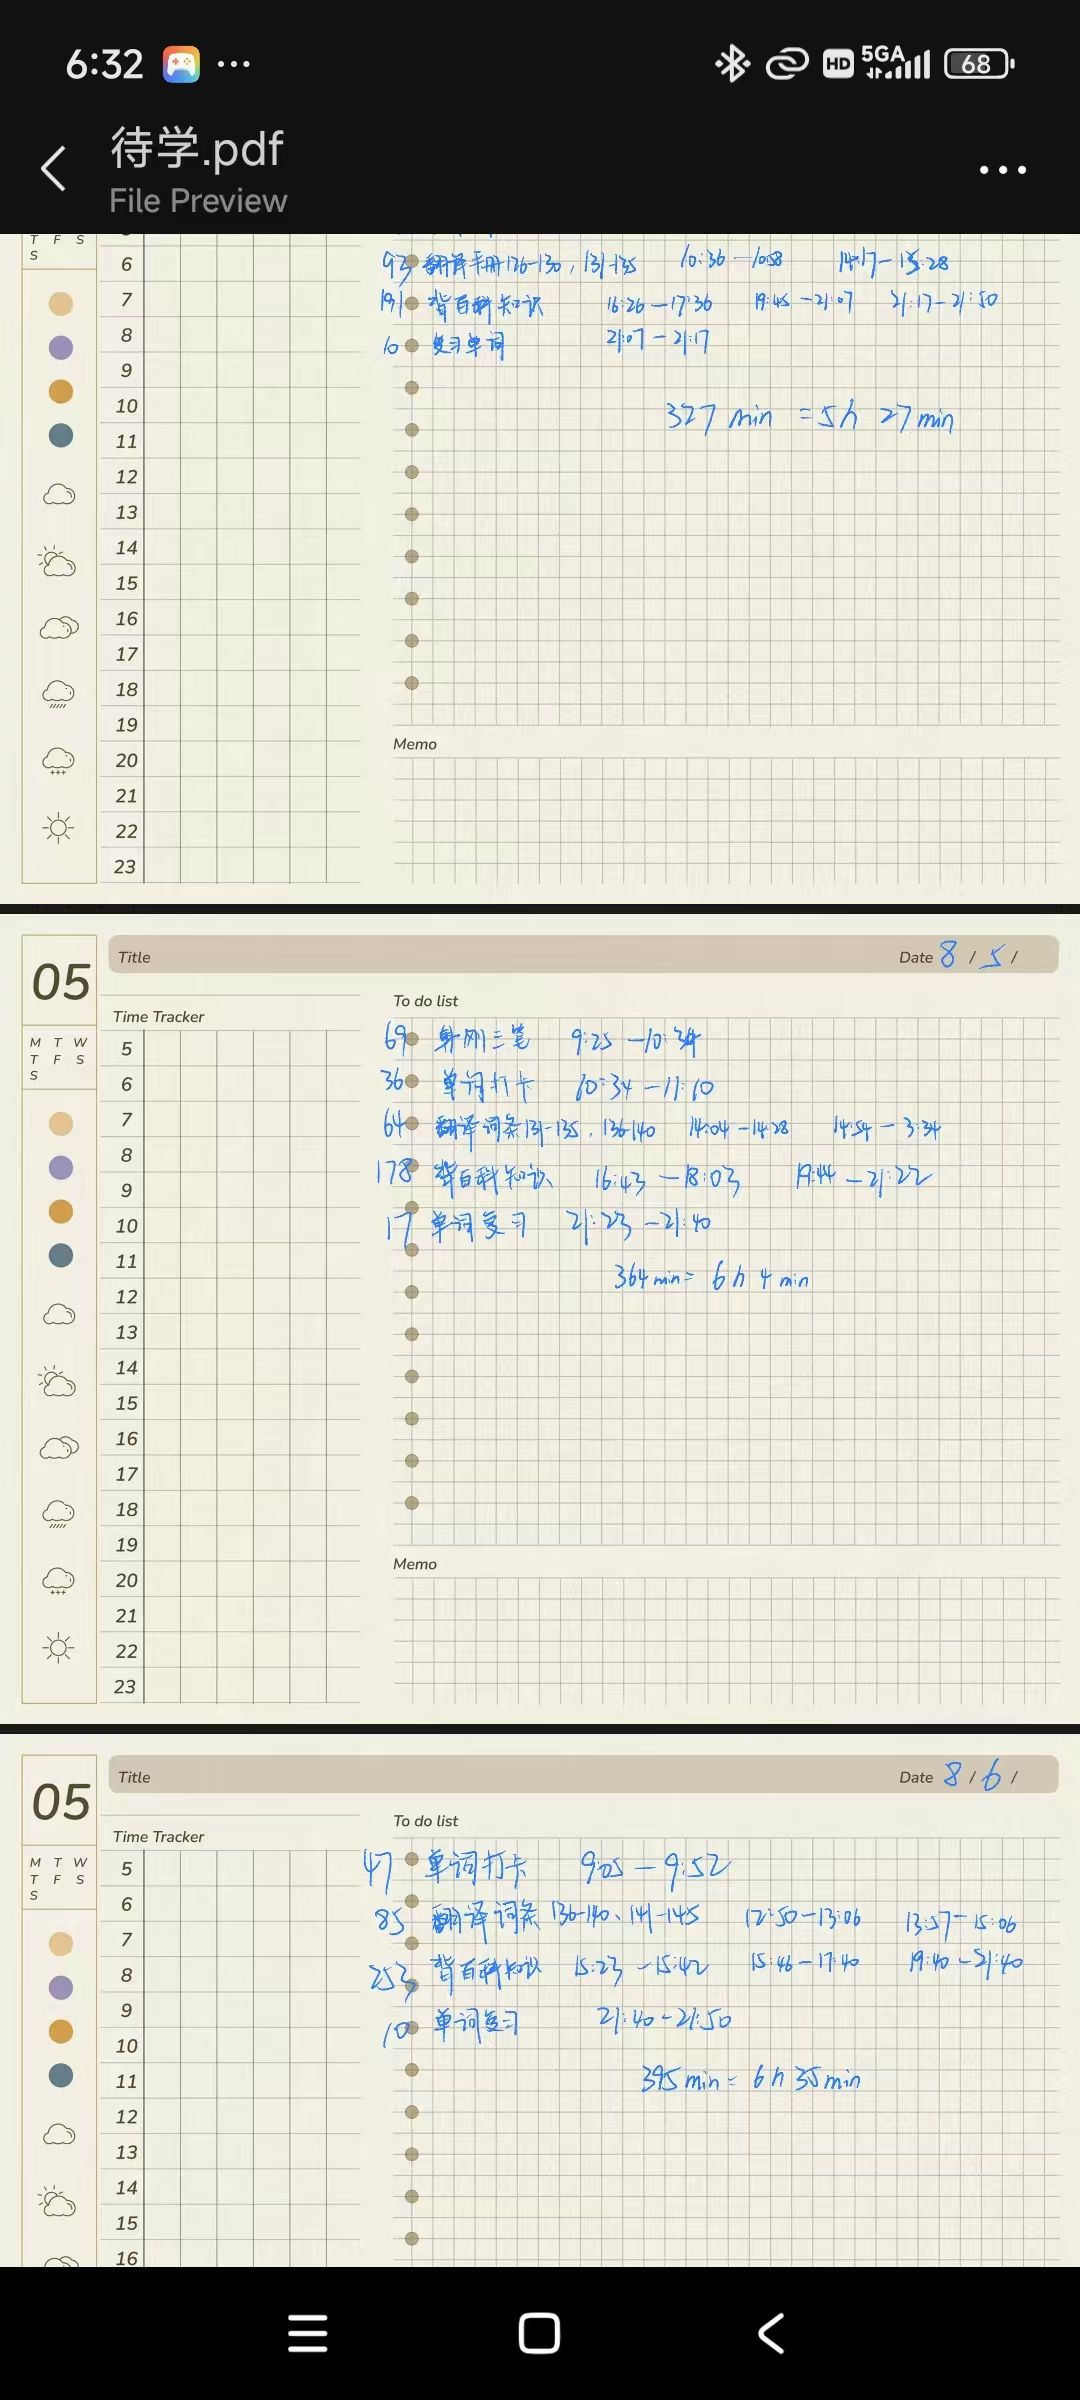 6:32 HD 5GA 68
待学.pdf
File Preview
T F S
S
6
7
8
9
10
11
12
13
14
15
16
17
18
19
20
21
22
23
93 翻译手册126-130, 131-135 10:36-10:58 14:17-15:28
191 背百科知识 16:26-17:36 19:45-21:07 21:17-21:50
10 复习单词 21:07-21:17
327 min = 5h 27 min
Memo
05
Title
Date 8 / 5 /
M T W
T F S
S
Time Tracker
5
6
7
8
9
10
11
12
13
14
15
16
17
18
19
20
21
22
23
To do list
69 三笔 9:25-10:34
36 单词打卡 10:34-11:10
64 翻译词条131-135, 136-140 14:04-14:28 14:54-3:34
178 背百科知识 16:43-18:03 19:44-21:22
17 单词复习 21:23-21:40
364 min = 6h 4 min
Memo
05
Title
Date 8 / 6 /
M T W
T F S
S
Time Tracker
5
6
7
8
9
10
11
12
13
14
15
16
To do list
47 单词打卡 9:05-9:52
85 翻译词条 136-140、141-145 12:50-13:06 13:57-15:06
253 背百科知识 15:23-15:42 15:46-17:40 19:40-21:40
10 单词复习 21:40-21:50
395 min = 6h 35 min